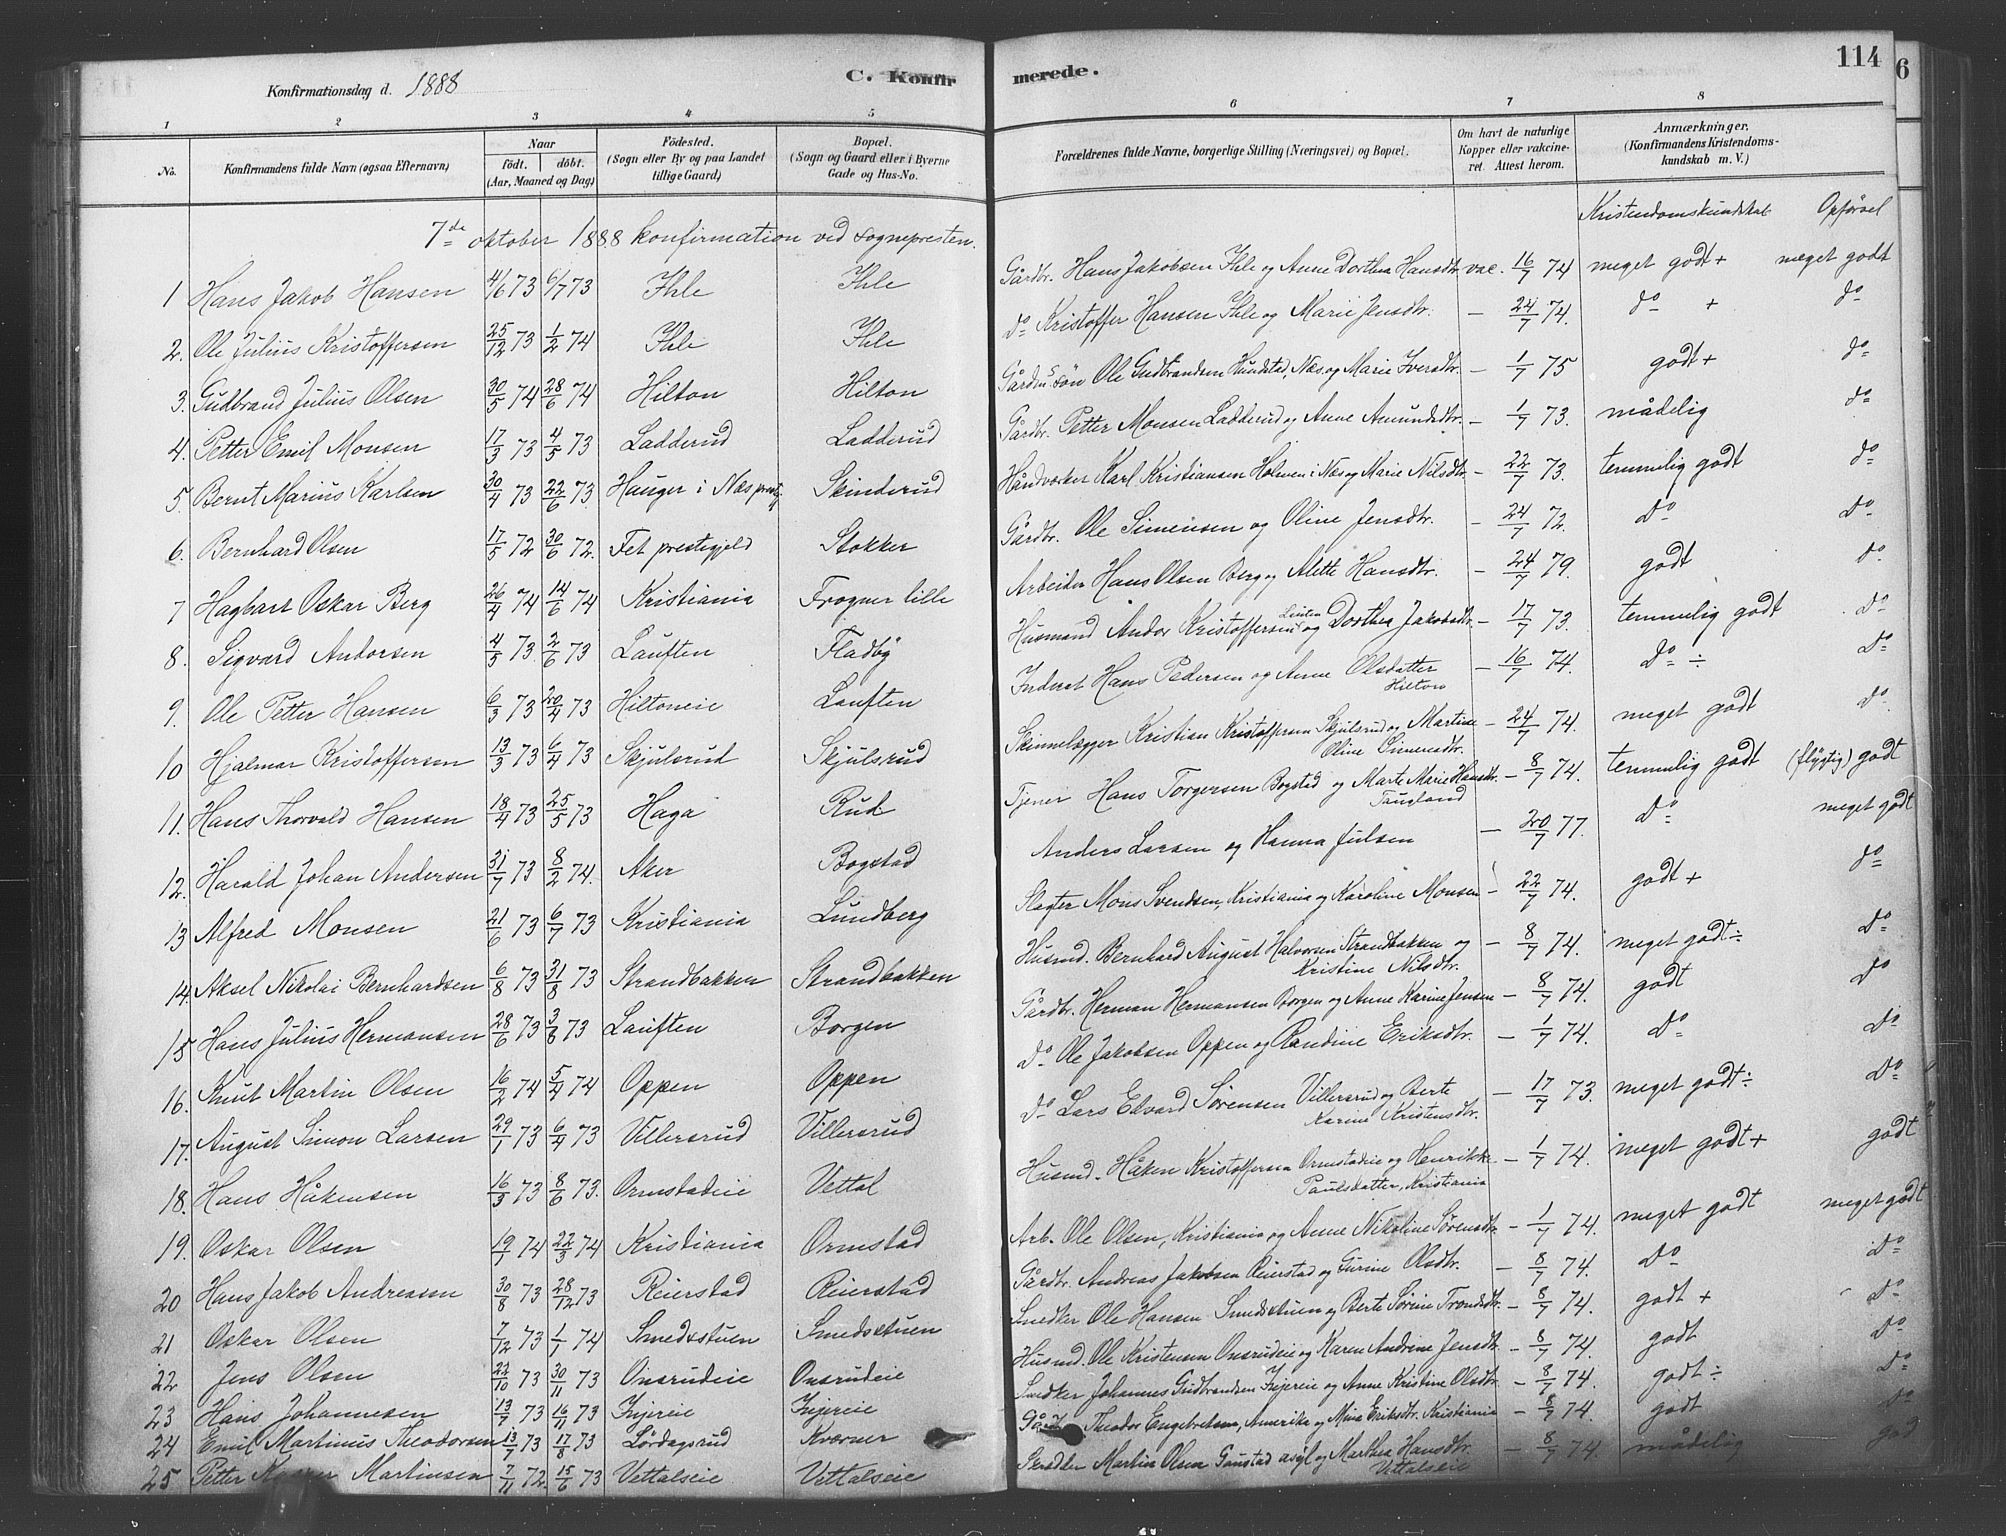 114
6
Konfirmationsdag d. 1888
C. Konfir merede.
1 2 3 4 5 6 7 8
No. Konfirmandens fulde Navn (ogsaa Efternavn) Naar födt. döbt. (Aar, Maaned og Dag) Födested. (Sogn eller By og paa Landet tillige Gaard) Bopæl. (Sogn og Gaard eller i Byerne Gade og Hus-No. Forældrenes fulde Navne, borgerlige Stilling (Næringsvei) og Bopæl. Om havt de naturlige Kopper eller vakcineret. Attest herom. Anmærkninger. (Konfirmandens Kristendomskundskab m. V.)
Kristendomskundskab Opførsel
7de oktober 1888 konfirmation ved sognepresten.
1 Hans Jakob Hansen 4/6 73 6/7 73 Ihle Ihle Gårdbr. Hans Jakobsen Ihle og Anne Dorthea Hansdtr. vac. 16/7 74 meget godt + meget godt
2. Ole Julius Kristoffersen 25/12 73 1/2 74 Ihle Ihle do Kristoffer Hansen Ihle og Marie Jensdtr. – 24/7 74. do + do
3. Gudbrand Julius Olsen 30/5 74 28/6 74 Hilton Hilton Gårdms søn Ole Gudbrandsen Hundstad, Næs og Marie Iversdtr. – 1/7 75 godt + do
4. Petter Emil Monsen 17/3 73 4/5 73 Ladderud Ladderud Gårdbr. Petter Monsen Ladderud og Anne Amundsdtr. – 1/7 73. mådelig do
5. Bernt Marius Karlsen 30/4 73 22/6 73 Hauger i Næs prestegj Skinderud Håndverker Karl Kristiansen Holmen i Næs og Marie Nilsdtr. – 22/7 73. temmelig godt do
6. Bernhard Olsen 17/5 72 30/6 72. Fet prestegjeld Stokker Gårdbr. Ole Simensen og Oline Jensdtr. – 24/7 72. do do
7 Hagbart Oskar Berg 26/4 74 14/6 74 Kristiania Frogner lille Arbeider Hans Olsen Berg og Alette Hansdtr. – 24/7 79. godt do
8. Sigvard Andorsen 4/3 73. 2/6 73 Lauften Fladby Husmand Andor Kristoffersen og Dorthea Jakobsdtr. – 17/7 73. temmelig godt do
9. Ole Petter Hansen 6/3 73 20/4 73 Hiltoneie Lauften Inderst Hans Pedersen og Anne Olsdatter Hilton – 16/7 74. do ÷ do
10 Hjalmar Kristoffersen 13/3 73 6/4 73 Skjulsrud Skjulsrud Skinnelægger Kristian Kristoffersen Skjulsrud og Martine Oline Simensdtr. – 24/7 74. meget godt do
11. Hans Thorvald Hansen 18/4 73 25/5 73 Haga Rud Tjener Hans Torgersen Bogstad og Marte Marie Hansdtr. Taugland – 8/7 74. temmelig godt (flygtig) godt
12. Harald Johan Andersen 31/7 73 8/2 74. Aker Bogstad Anders Larsen og Hanna Julsen – 20/7 77. do meget godt
13 Alfred Monsen 21/6 73 6/7 73 Kristiania Lundberg Slagter Mons Svendsen, Kristiania og Karoline Monsen – 22/7 74. godt + do
14. Aksel Nikolai Bernhardsen 6/8 73 31/8 73 Strandbakken Strandbakken Husmd. Bernhard August Halvorsen Strandbakken og Kristine Nilsdtr. – 8/7 74. meget godt ÷ do
15 Hans Julius Hermansen 28/6 73 3/8 73 Lauften Borgen Gårdbr. Herman Hermansen Borgen og Anne Karine Jensen – 8/7 74. godt do
16. Knut Martin Olsen 16/2 74 5/4 74 Oppen Oppen do Ole Jakobsen Oppen og Randine Eriksdtr. – 1/7 74. do do
17. August Simon Larsen 29/1 73 6/4 73 Villersrud Villersrud do Lars Edvard Sørensen Villersrud og Berte Karine Kristensdtr. – 17/7 73. meget godt ÷ do
18. Hans Håkensen 16/3 73 8/6 73. Ormstadeie Vettal Husmd. Håken Kristoffersen Ormstadeie og Henrikke Paulsdatter, Kristiania – 1/7 74. meget godt + godt
19. Oskar Olsen 19/1 74 22/3 74 Kristiania Ormstad Arb. Ole Olsen, Kristiania og Anne Nikoline Sørensdtr. – 1/7 74. meget godt meget godt
20 Hans Jakob Andreasen 30/8 73 28/12 73 Reierstad Reierstad Gårdbr. Andreas Jakobsen Reierstad og Gurine Olsdtr. – 8/7 74. do do
21 Oskar Olsen 7/12 73 1/1 74 Smedsstuen Smedsstuen Snedker Ole Hansen Smedsstuen og Berte Sørine Trondsdtr. – 8/7 74. godt + do
22 Jens Olsen 22/10 73 30/11 73 Onsrudeie Onsrudeie Husmd. Ole Kristensen Onsrudeie og Karen Andrine Jensdtr. – 8/7 74. godt do
23 Hans Johannesen 13/9 73 16/11 73 Injereie Injereie Snedker Johannes Gudbrandsen Injereie og Anne Kristine Olsdtr. – 8/7 74. godt ÷ do
24 Emil Martinus Theodorsen 13/7 73 17/8 73 Lørdagsrud Kværner Theodor Engebretsen, Amerika og Mina Eriksdtr. Kristiania 8/7 74. godt do
25 Petter Martinsen 7/11 72 15/6 73 Vettalseie Vettalseie Skrædder Martin Olsen Gaustad asyl og Marthea Hansdtr. Vettalseie – 8/7 74. mådelig god